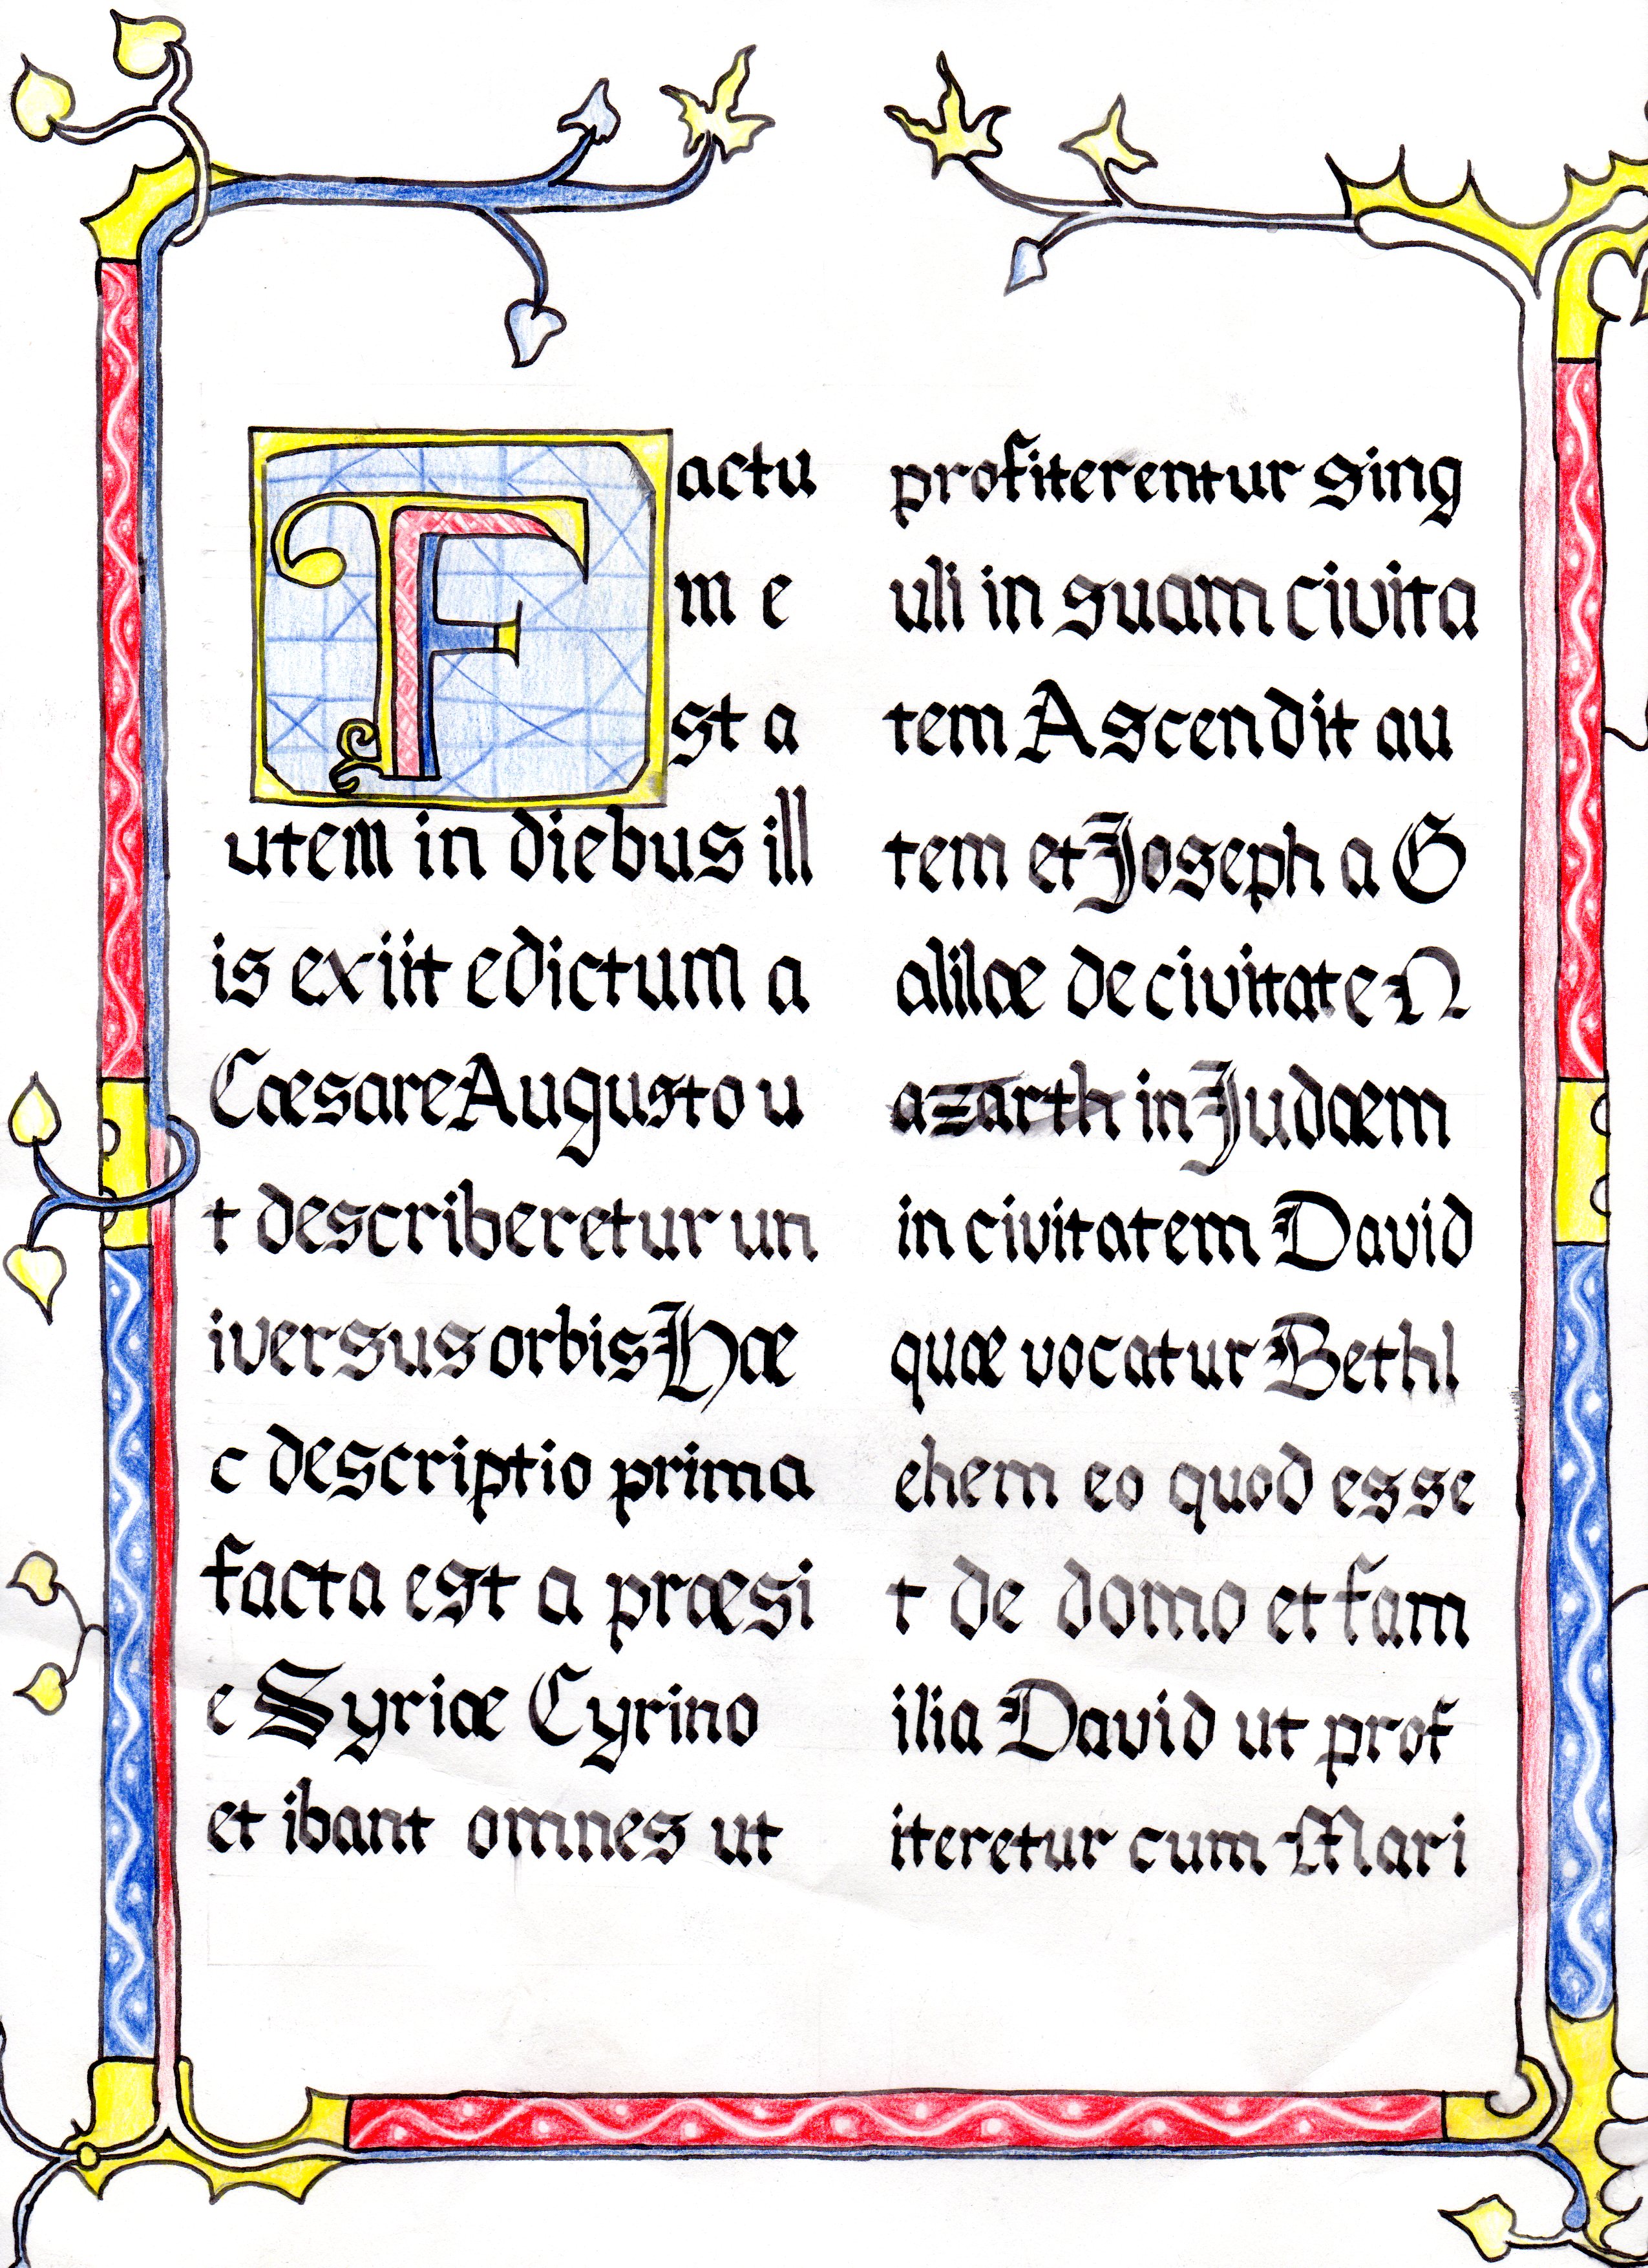 Factu
m e
st a
utem in diebus ill
is exiit edictum a
Cæsare Augusto u
t describeretur un
iversus orbis Hæ
c descriptio prima
facta est a præsi
e Syriæ Cyrino
et ibant omnes ut
profiterentur sing
uli in suam civita
tem Ascendit au
tem et Joseph a G
alilæ de civitate N
azarth in Judæm
in civitatem David
quæ vocatur Bethl
ehem eo quod esse
t de domo et fam
ilia David ut prof
iteretur cum Mari